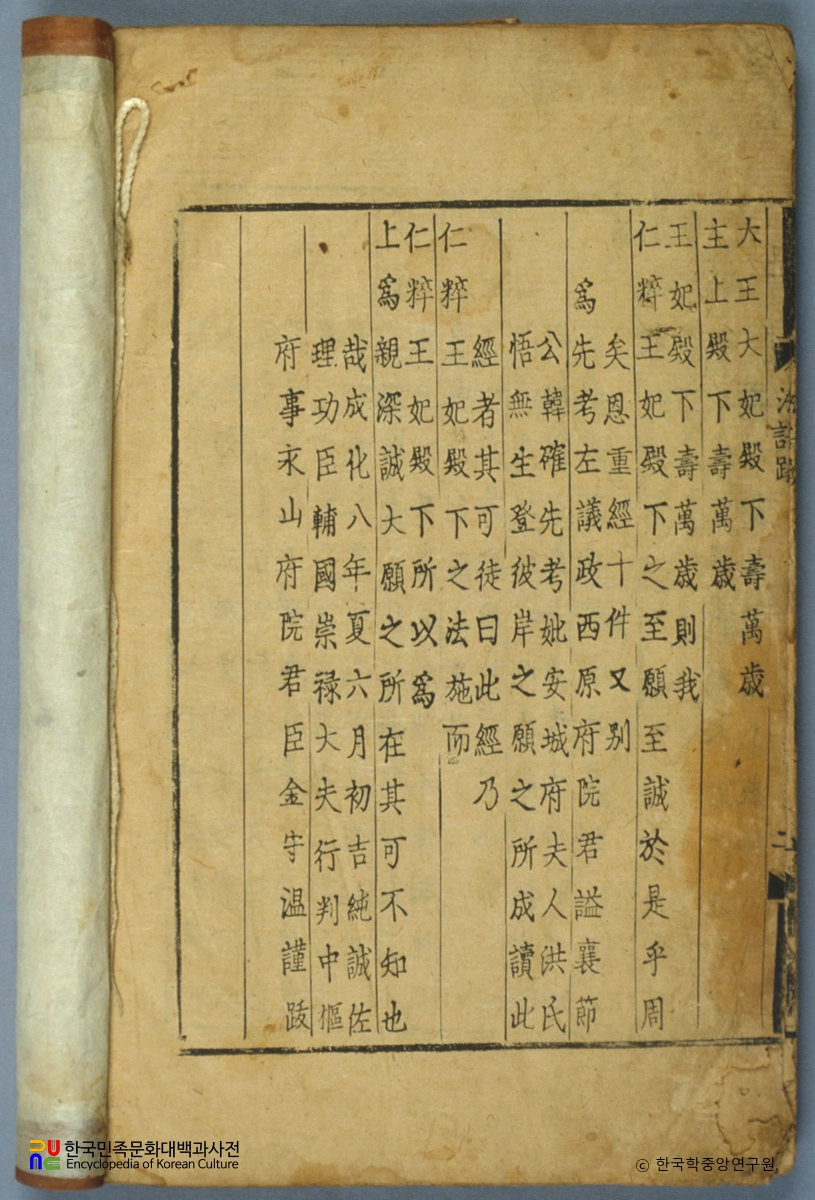 大王大妃殿下壽萬歲
主上殿下壽萬歲
王妃殿下壽萬歲則我
仁粹王妃殿下之至願至誠於是乎周
矣恩重經十件又別
爲先考左議政西原府院君謚襄節
公韓確先考妣安城府夫人洪氏
悟無生登彼岸之願之所成讀此
經者其可徒曰此經乃
仁粹王妃殿下之法施而
仁粹王妃殿下所以爲
上爲親深誠大願之所在其可不知也
哉成化八年夏六月初吉純誠佐
理功臣輔國崇禄大夫行判中樞
府事永山府院君臣金守温謹跋
二
한국민족문화대백과사전
Encyclopedia of Korean Culture
© 한국학중앙연구원